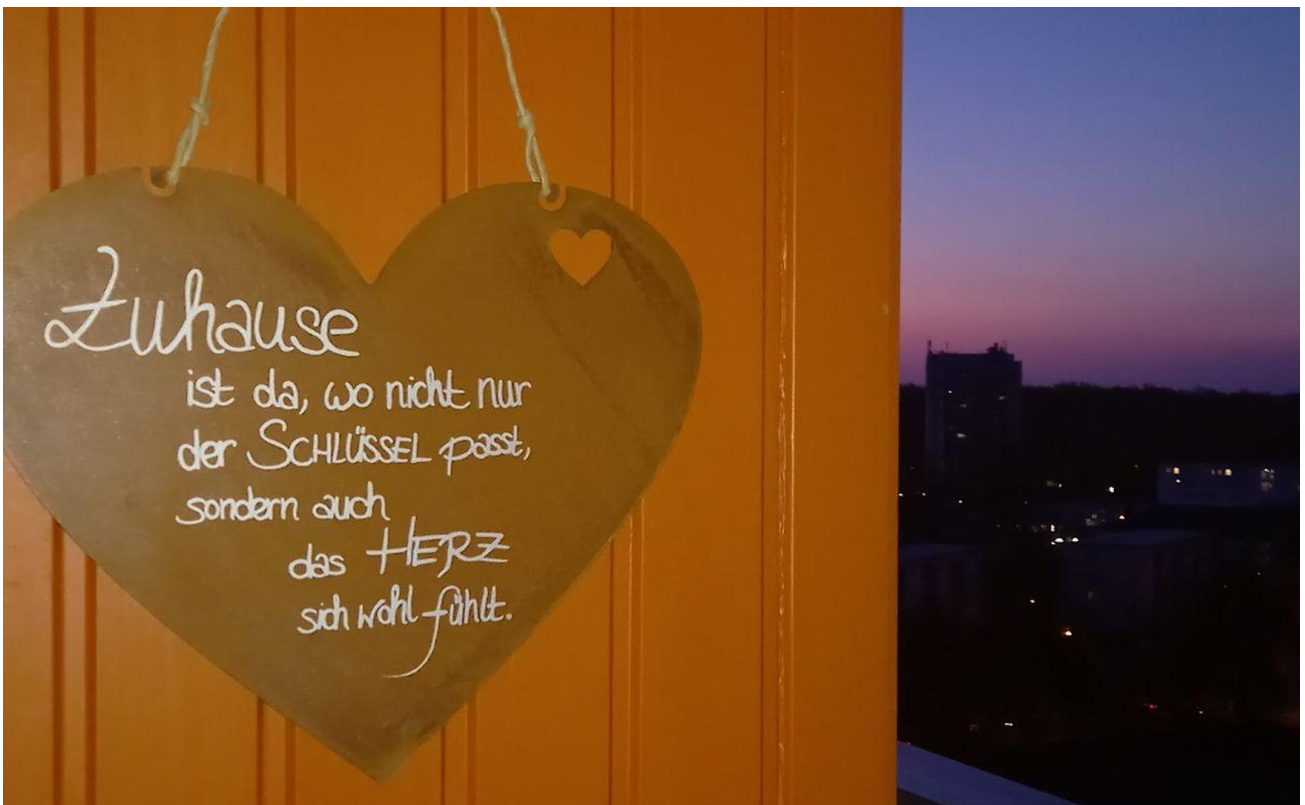 Zuhause
ist da, wo nicht nur
der SCHLÜSSEL passt,
sondern auch
das HERZ
sich wohl fühlt.